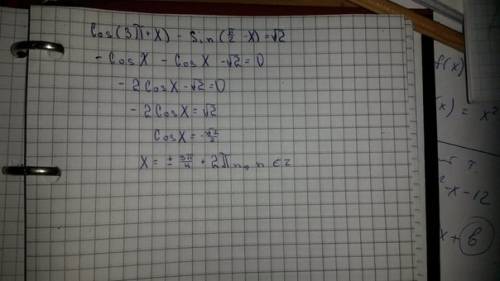 Cos(3π+X) - Sin(π/2 -X)=√2
- CosX - CosX -√2=0
- 2CosX-√2=0
- 2CosX=√2
CosX=-√2/2
X= ± 3π/4 + 2πn, n ∈ z
f(x)
(x) = x²
² -x -12
x + 6